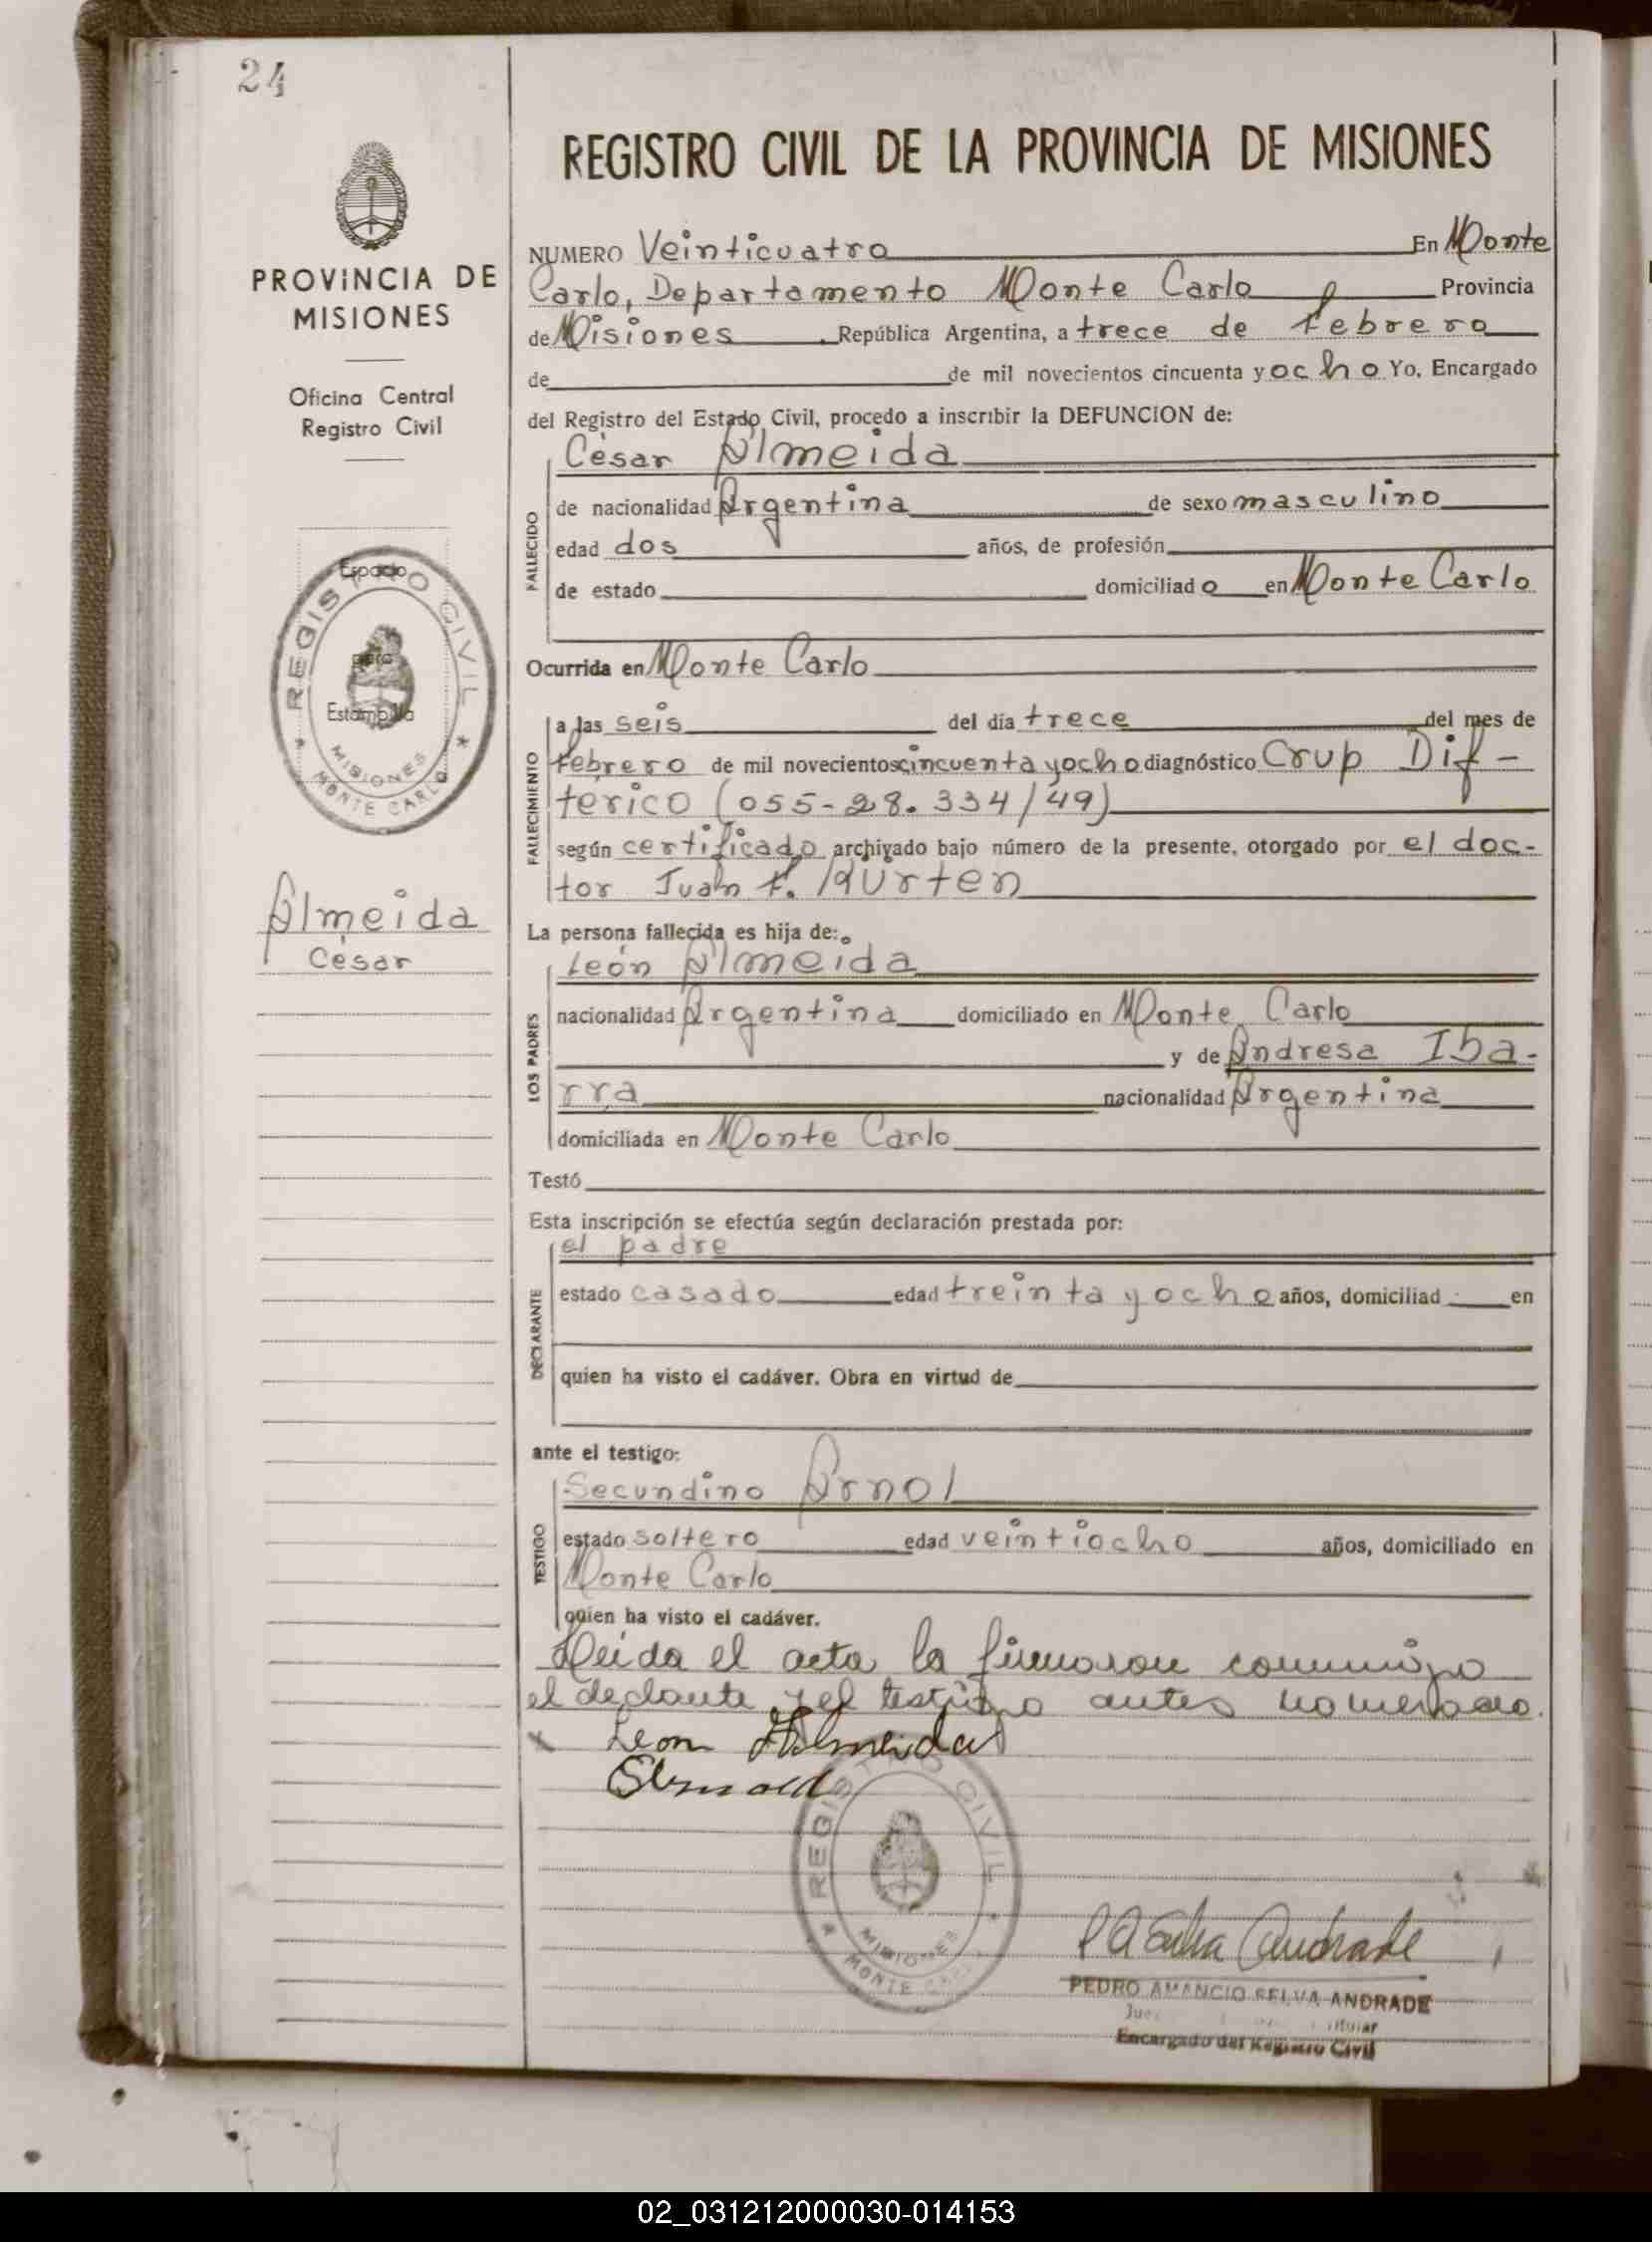 24
PROVINCIA DE
MISIONES
Oficina Central
Registro Civil
Espacio
para
Estampilla
REGISTRO CIVIL
MISIONES
MONTE CARLO
Almeida
César
REGISTRO CIVIL DE LA PROVINCIA DE MISIONES
NUMERO Veinticuatro En Monte
Carlo, Departamento Monte Carlo Provincia
de Misiones República Argentina, a trece de febrero
de de mil novecientos cincuenta y ocho Yo, Encargado
del Registro del Estado Civil, procedo a inscribir la DEFUNCION de:
César Almeida
FALLECIDO
de nacionalidad Argentina de sexo masculino
edad dos años, de profesión
de estado domiciliado en Monte Carlo
Ocurrida en Monte Carlo
FALLECIMIENTO
a las seis del día trece del mes de
febrero de mil novecientos cincuenta y ocho diagnóstico Crup Dif-
terico (055-28.334/49)
según certificado archivado bajo número de la presente, otorgado por el doc-
tor Juan F. Hurten
La persona fallecida es hija de:
León Almeida
LOS PADRES
nacionalidad Argentina domiciliado en Monte Carlo
y de Andresa Iba-
rra nacionalidad Argentina
domiciliada en Monte Carlo
Testó
Esta inscripción se efectúa según declaración prestada por:
el padre
DECLARANTE
estado casado edad treinta y ocho años, domiciliad en
quien ha visto el cadáver. Obra en virtud de
ante el testigo:
Secundino Arnol
TESTIGO
estado soltero edad veintiocho años, domiciliado en
Monte Carlo
quien ha visto el cadáver.
Leida el acta la firmaron conmigo
el declante y el testigo antes nomerado.
x Leon Almeida
REGISTRO CIVIL
MISIONES
MONTE CARLO
PEDRO AMANCIO SELVA ANDRADE
Encargado del Registro Civil
02_031212000030-014153